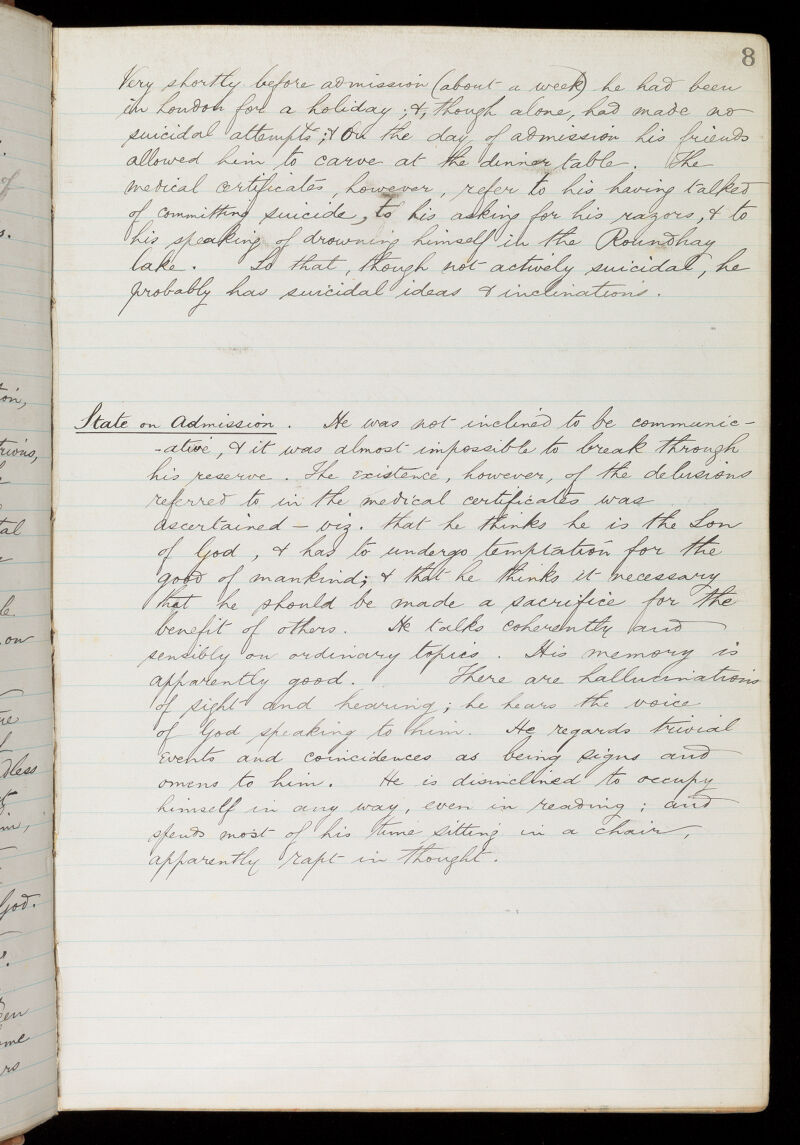 8
Very shortly before admission (about a week) he had been
in London for a holiday; &, though alone, had made no
suicidal attempts; & On the day of admission his friends
allowed him to carve at the dinner table. The
medical certificates, however, refer to his having talked
of committing suicide, to his asking for his razors, & to
his speaking of drowning himself in the Roundhay
lake. So that, though not actively suicidal, he
probably has suicidal ideas & inclinations.
State on Admission. He was not inclined to be communic-
-ative, & it was almost impossible to break through
his reserve. The existence, however, of the delusions
referred to in the medical certificates was
ascertained – viz. that he thinks he is the Son
of God, & has to undergo temptation for the
good of mankind; & that he thinks it necessary
that he should be made a sacrifice for the
benefit of others. He talks coherently and
sensibly on ordinary topics. His memory is
apparently good. There are hallucinations
of sight and hearing; he hears the voice
of God speaking to him. He regards trivial
events and coincidences as being signs and
omens to him. He is disinclined to occupy
himself in any way, even in reading; and
spends most of his time sitting in a chair,
apparently rapt in thought.